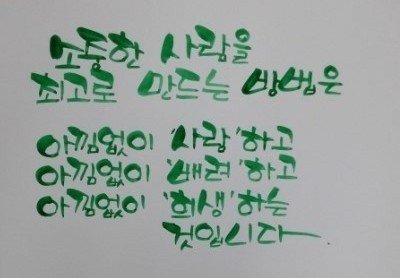 소중한 사람을
최고로 만드는 방법은
아낌없이 '사람'하고
아낌없이 '배려'하고
아낌없이 '희생'하는
것입니다